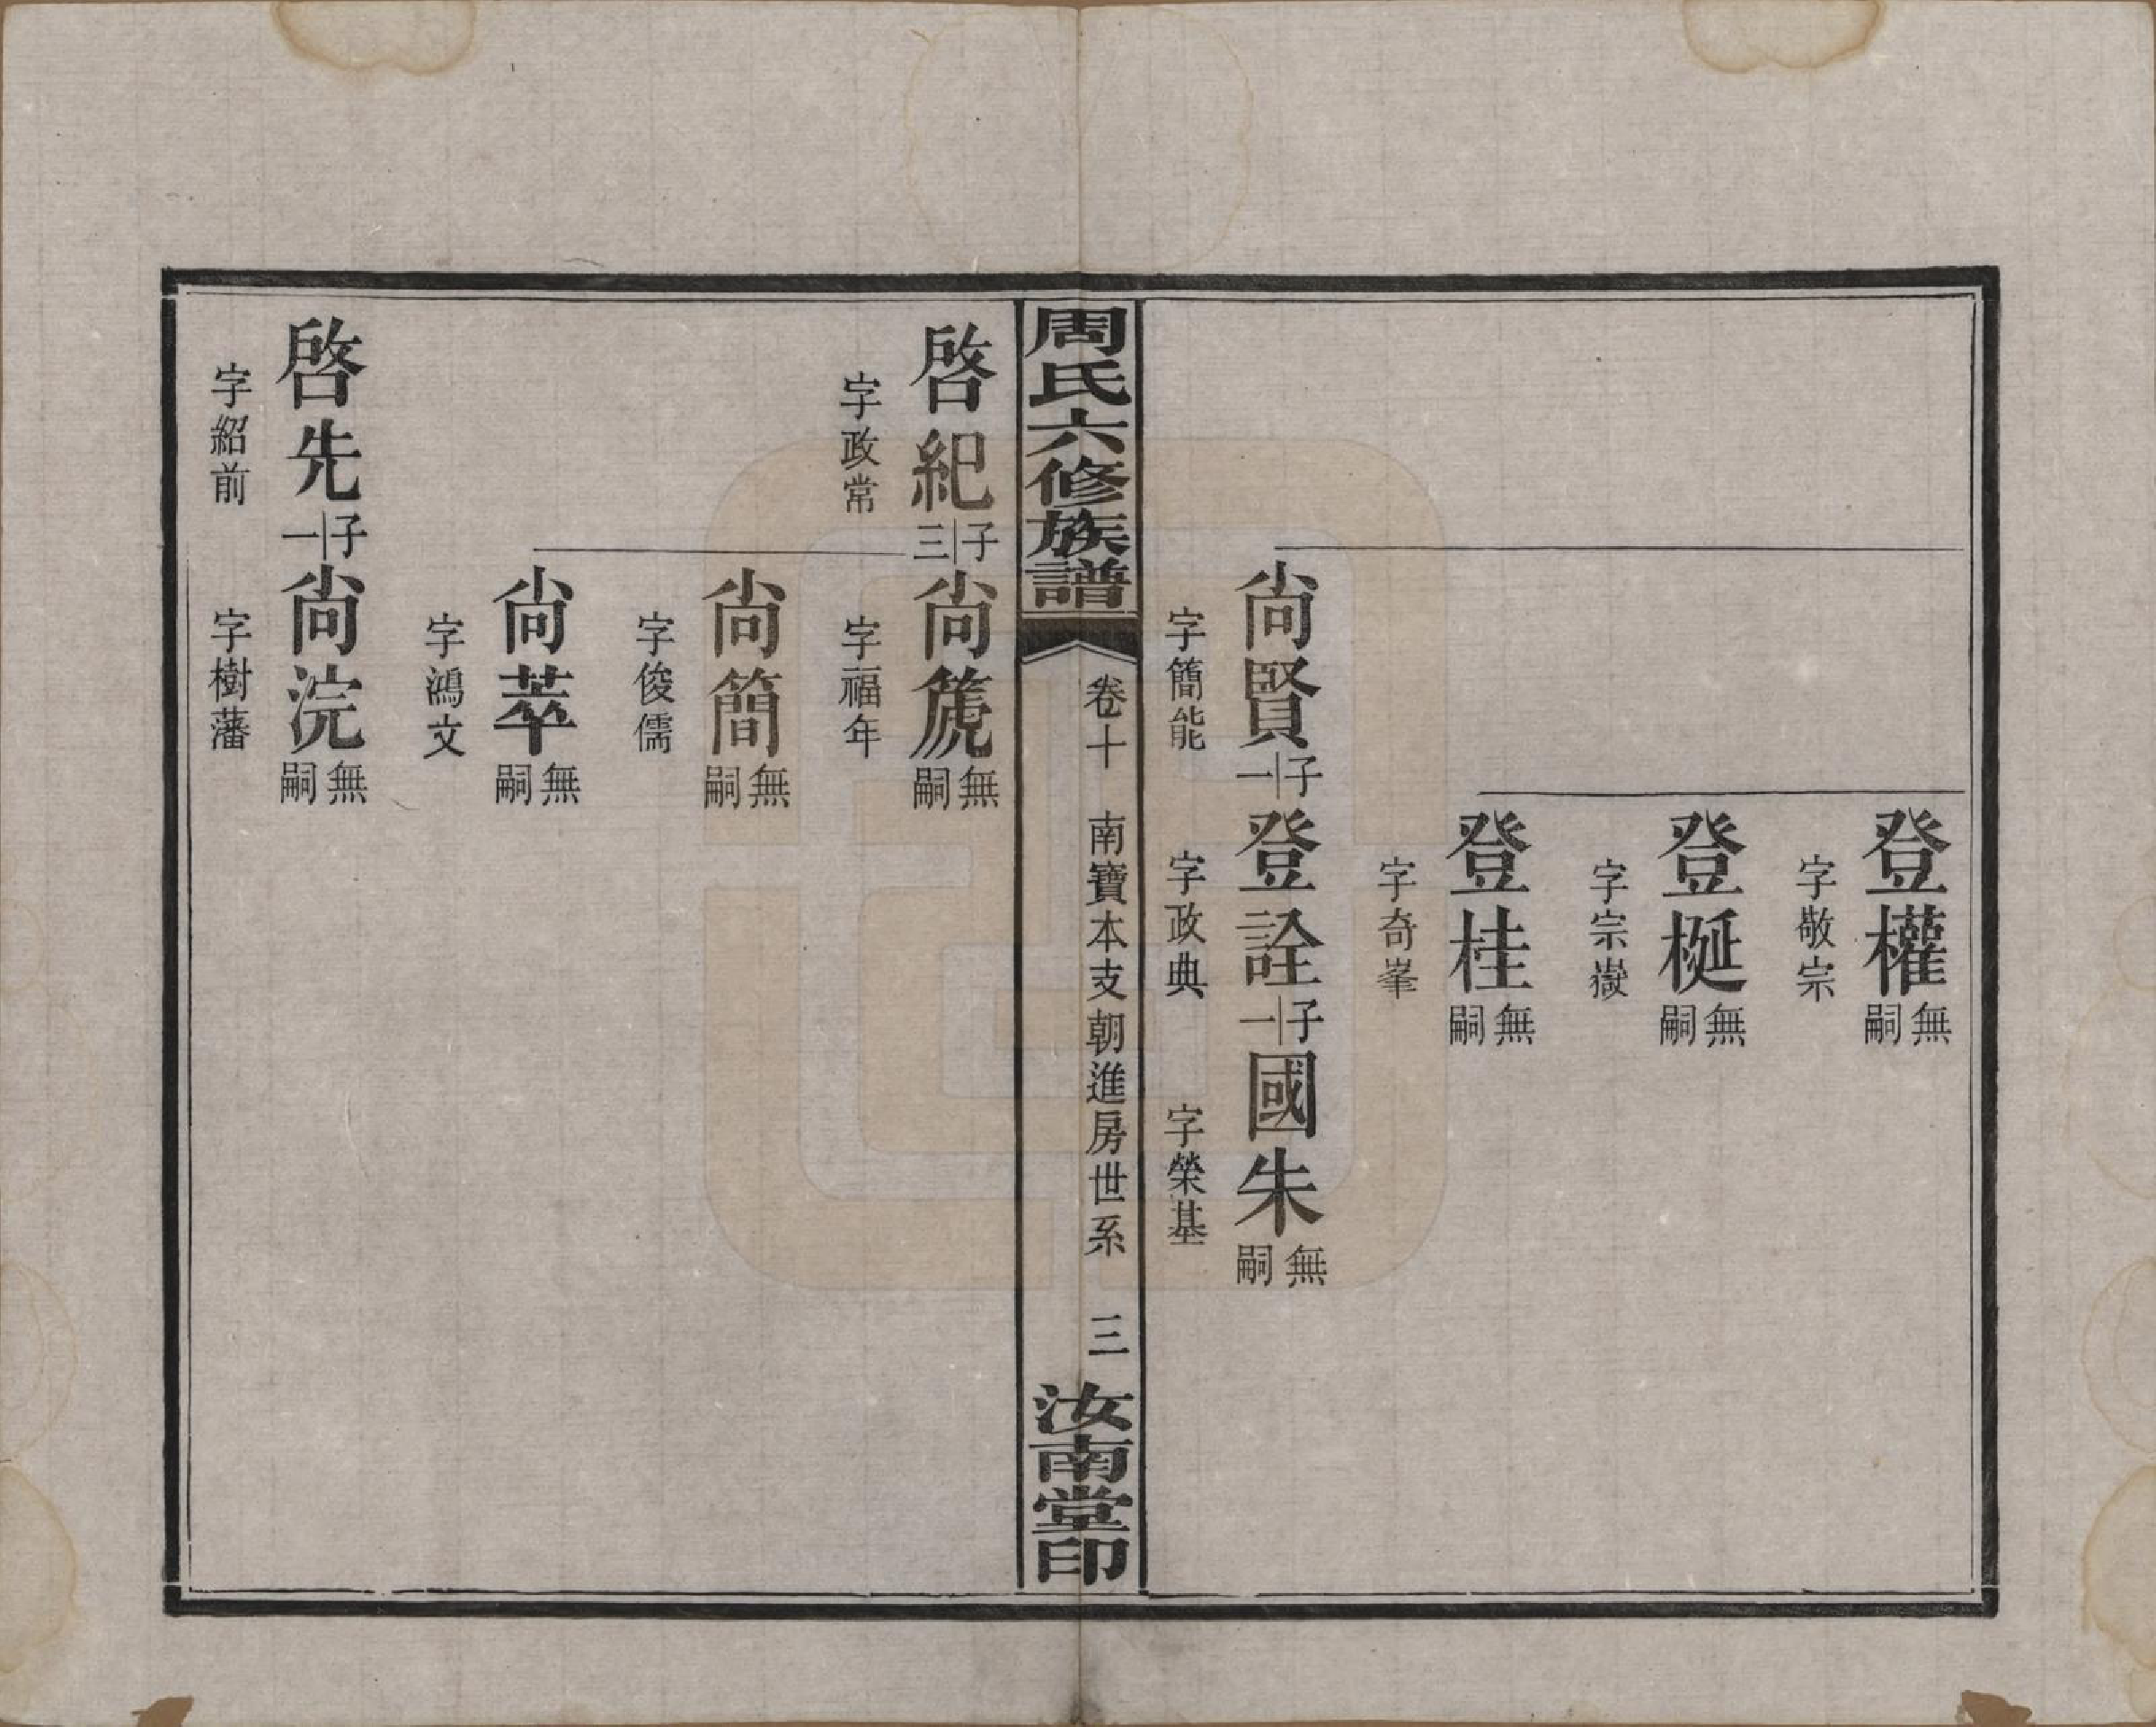 登權無嗣
字敬宗
登梃無嗣
字宗嶽
登桂無嗣
字奇峯
尚賢子一登詮子一國朱無嗣
字簡能 字政典 字榮基
周氏六修族譜 卷十 南寶本支朝進房世系 三 汝南堂印
啓紀子三尚篪無嗣
字政常 字福年
尚簡無嗣
字俊儒
尚萃無嗣
字鴻文
啓先子一尚浣無嗣
字紹前 字樹藩